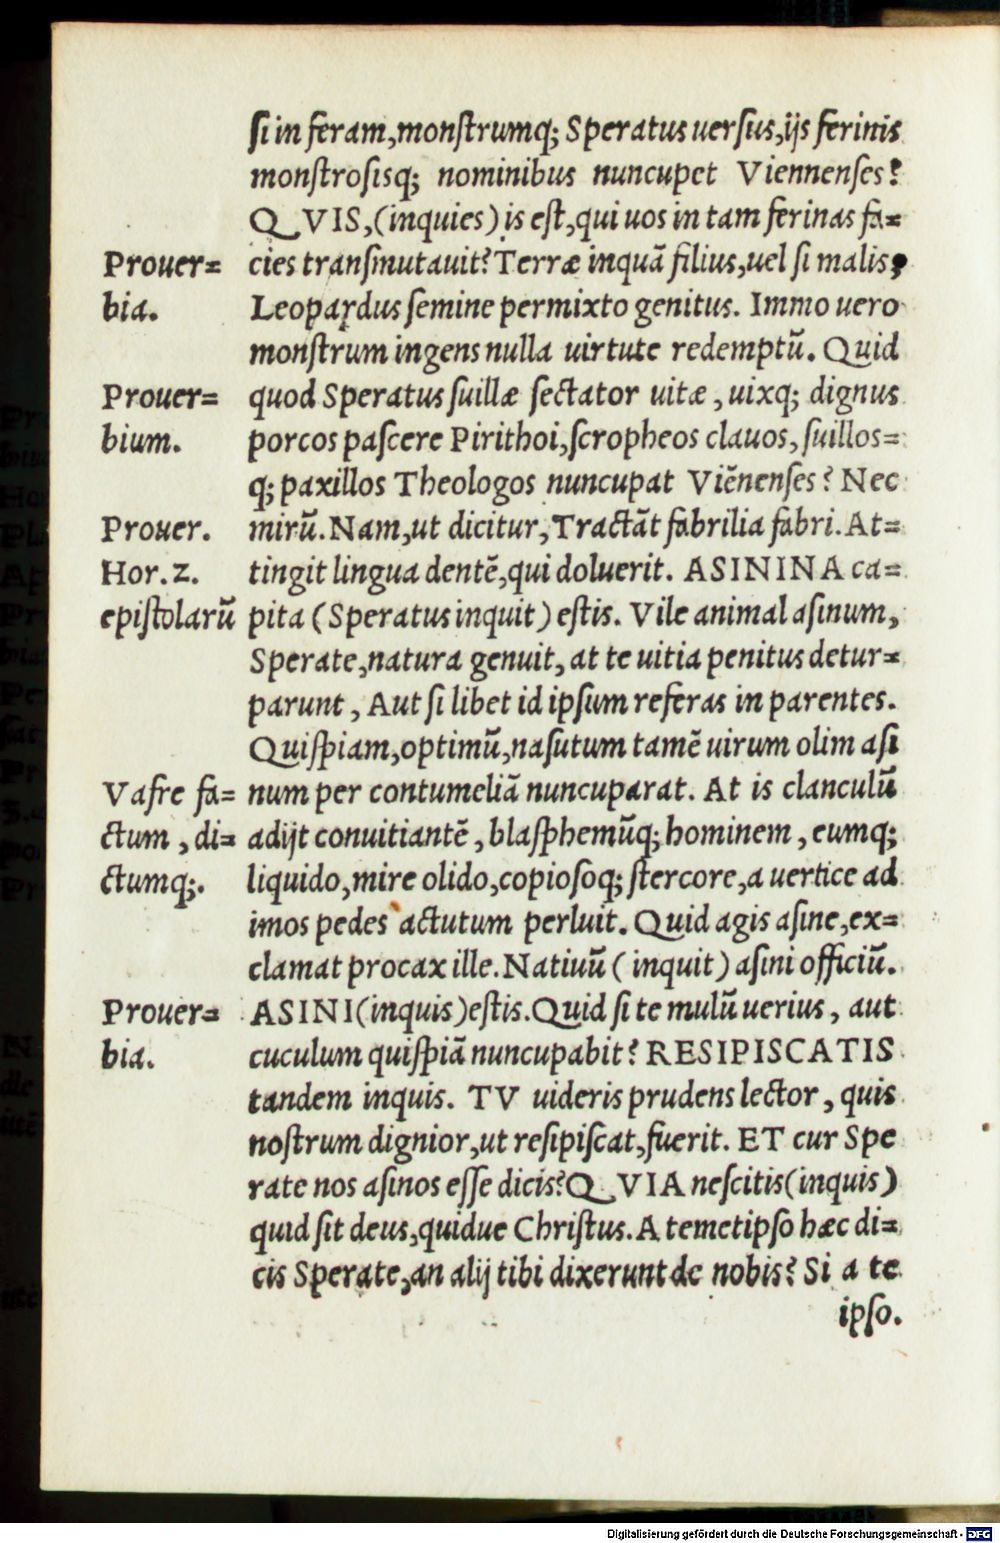 si in feram,monstrumq; Speratus uersus,ijs ferinis
monstrosisq; nominibus nuncupet Viennenses?
QVIS,(inquies) is est,qui uos in tam ferinas fa=
Prouer= cies transmutauit? Terræ inquā filius,uel si malis,
bia. Leopardus semine permixto genitus. Immo uero
monstrum ingens nulla uirtute redemptū. Quid
Prouer= quod Speratus suillæ sectator uitæ, uixq; dignus
bium. porcos pascere Pirithoi,scropheos clauos, suillos=
q; paxillos Theologos nuncupat Viēnenses? Nec
Prouer. mirū. Nam,ut dicitur,Tractāt fabrilia fabri. At=
Hor. 2. tingit lingua dentē,qui doluerit. ASININA ca=
epistolarū pita (Speratus inquit) estis. Vile animal asinum,
Sperate,natura genuit, at te uitia penitus detur=
parunt, Aut si libet id ipsum referas in parentes.
Quispiam,optimū,nasutum tamē uirum olim asi
Vafre fa= num per contumeliā nuncuparat. At is clanculū
ctum, di= adijt conuitiantē, blasphemūq; hominem, eumq;
ctumq;. liquido,mire olido,copiosoq; stercore,a uertice ad
imos pedes actutum perluit. Quid agis asine,ex=
clamat procax ille. Natiuū (inquit) asini officiū.
Prouer= ASINI (inquis) estis. Quid si te mulū uerius, aut
bia. cuculum quispiā nuncupabit? RESIPISCATIS
tandem inquis. TV uideris prudens lector, quis
nostrum dignior,ut resipiscat,fuerit. ET cur Spe
rate nos asinos esse dicis? QVIA nescitis (inquis)
quid sit deus,quidue Christus. A temetipso hæc di=
cis Sperate,an alij tibi dixerunt de nobis? Si a te
ipso.
Digitalisierung gefördert durch die Deutsche Forschungsgemeinschaft - DFG